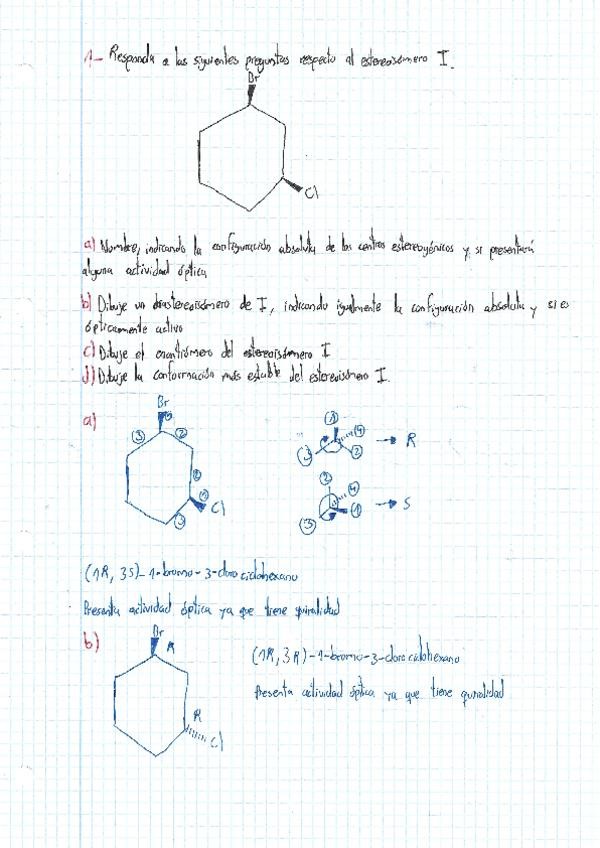 1- Responda a las siguientes preguntas respecto al estereoisómero I.
Br
Cl
a) Nombre, indicando la configuración absoluta de los centros estereogénicos y si presentará
alguna actividad óptica
b) Dibuje un diastereoisómero de I, indicando igualmente la configuración absoluta y si es
ópticamente activo
c) Dibuje el enantiómero del estereoisómero I
d) Dibuje la conformación más estable del estereoisómero I.
a)
Br
1
3
2
2
1
Cl
3
1
4
3
2
R
2
4
3
1
S
(1R, 3S)-1-bromo-3-clorociclohexano
Presenta actividad óptica ya que tiene quiralidad
b)
Br
R
R
Cl
(1R, 3R)-1-bromo-3-clorociclohexano
Presenta actividad óptica ya que tiene quiralidad